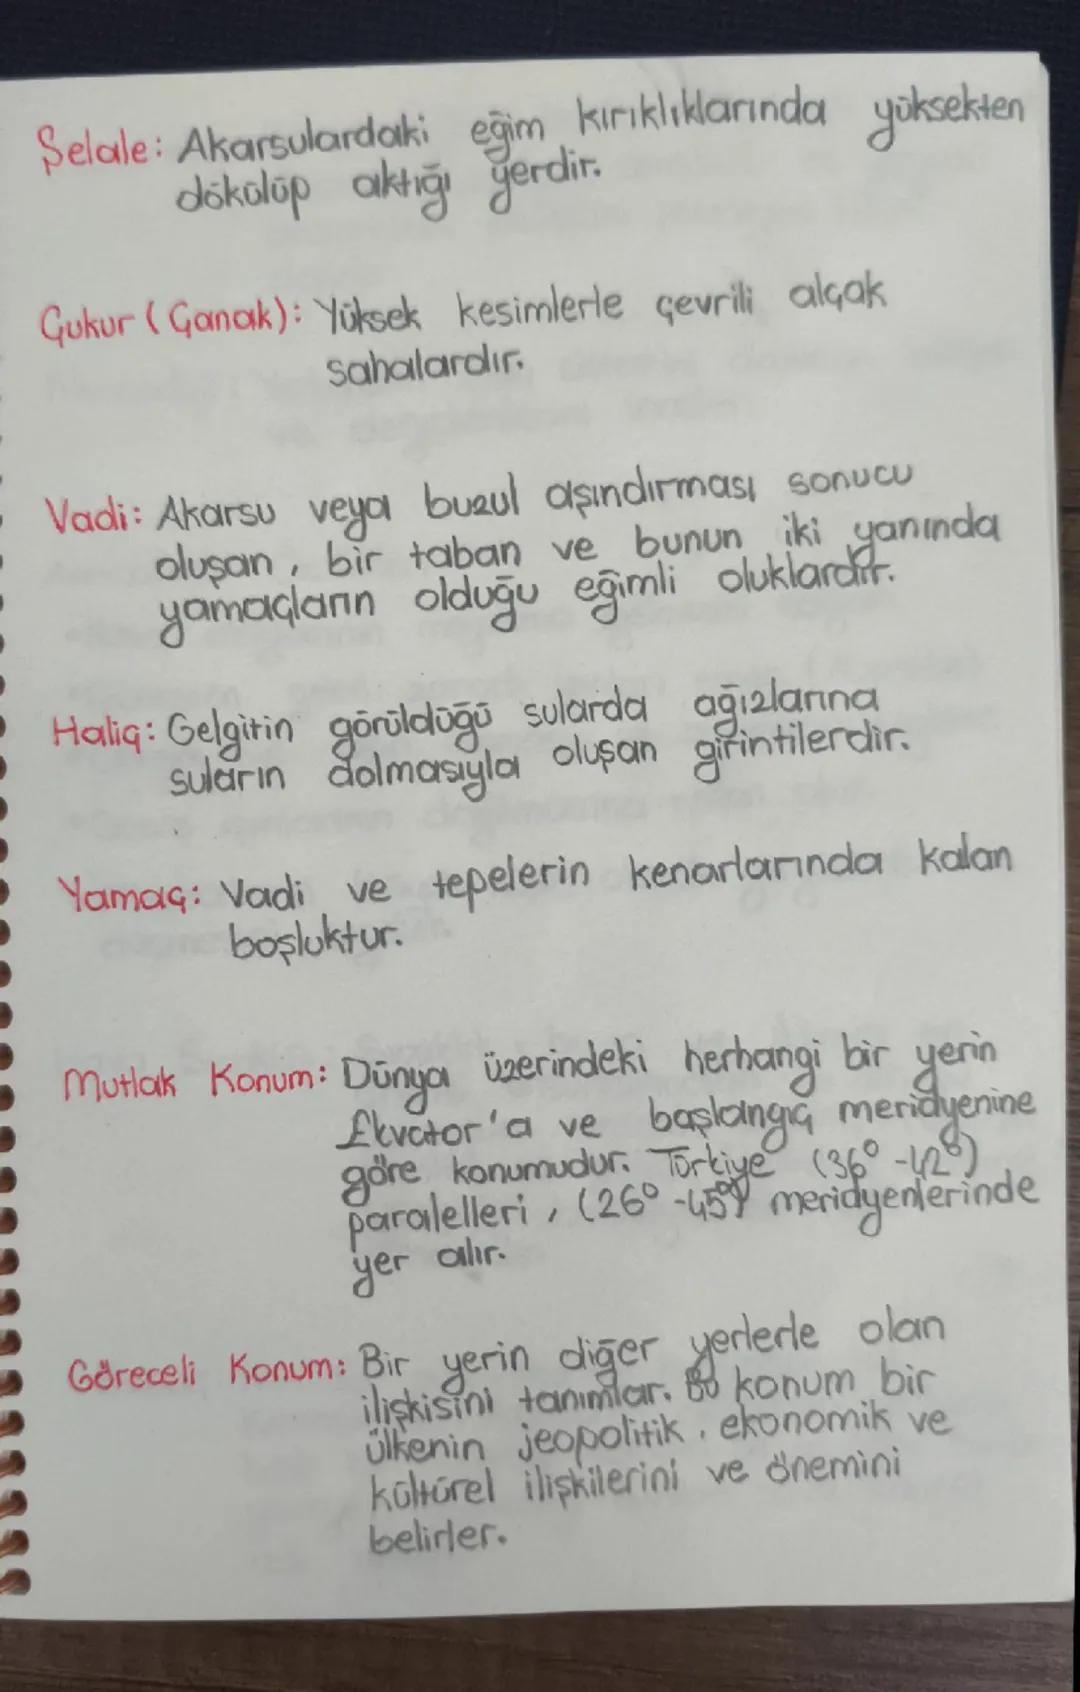 Şelale: Akarsulardaki eğim kırıklıklarında yüksekten
dökülüp aktığı yerdir.
Çukur (Çanak): Yüksek kesimlerle çevrili alçak
sahalardır.
Vadi: Akarsu veya buzul aşındırması sonucu
oluşan, bir taban ve bunun iki yanında
yamaçların olduğu eğimli oluklardır.
Haliç: Gelgitin görüldüğü sularda ağızlarına
suların dolmasıyla oluşan girintilerdir.
Yamaç: Vadi ve tepelerin kenarlarında kalan
boşluktur.
Mutlak Konum: Dünya üzerindeki herhangi bir yerin
Ekvator'a ve başlangıç meridyenine
göre konumudur. Türkiye (36° -42°)
paralelleri, (26° -45°) meridyenlerinde
yer alır.
Göreceli Konum: Bir yerin diğer yerlerle olan
ilişkisini tanımlar. Bu konum bir
ülkenin jeopolitik, ekonomik ve
kültürel ilişkilerini ve önemini
belirler.